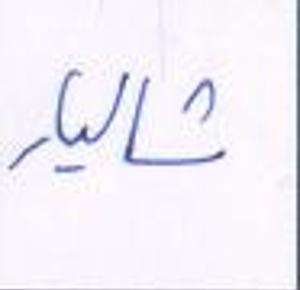 شالیار